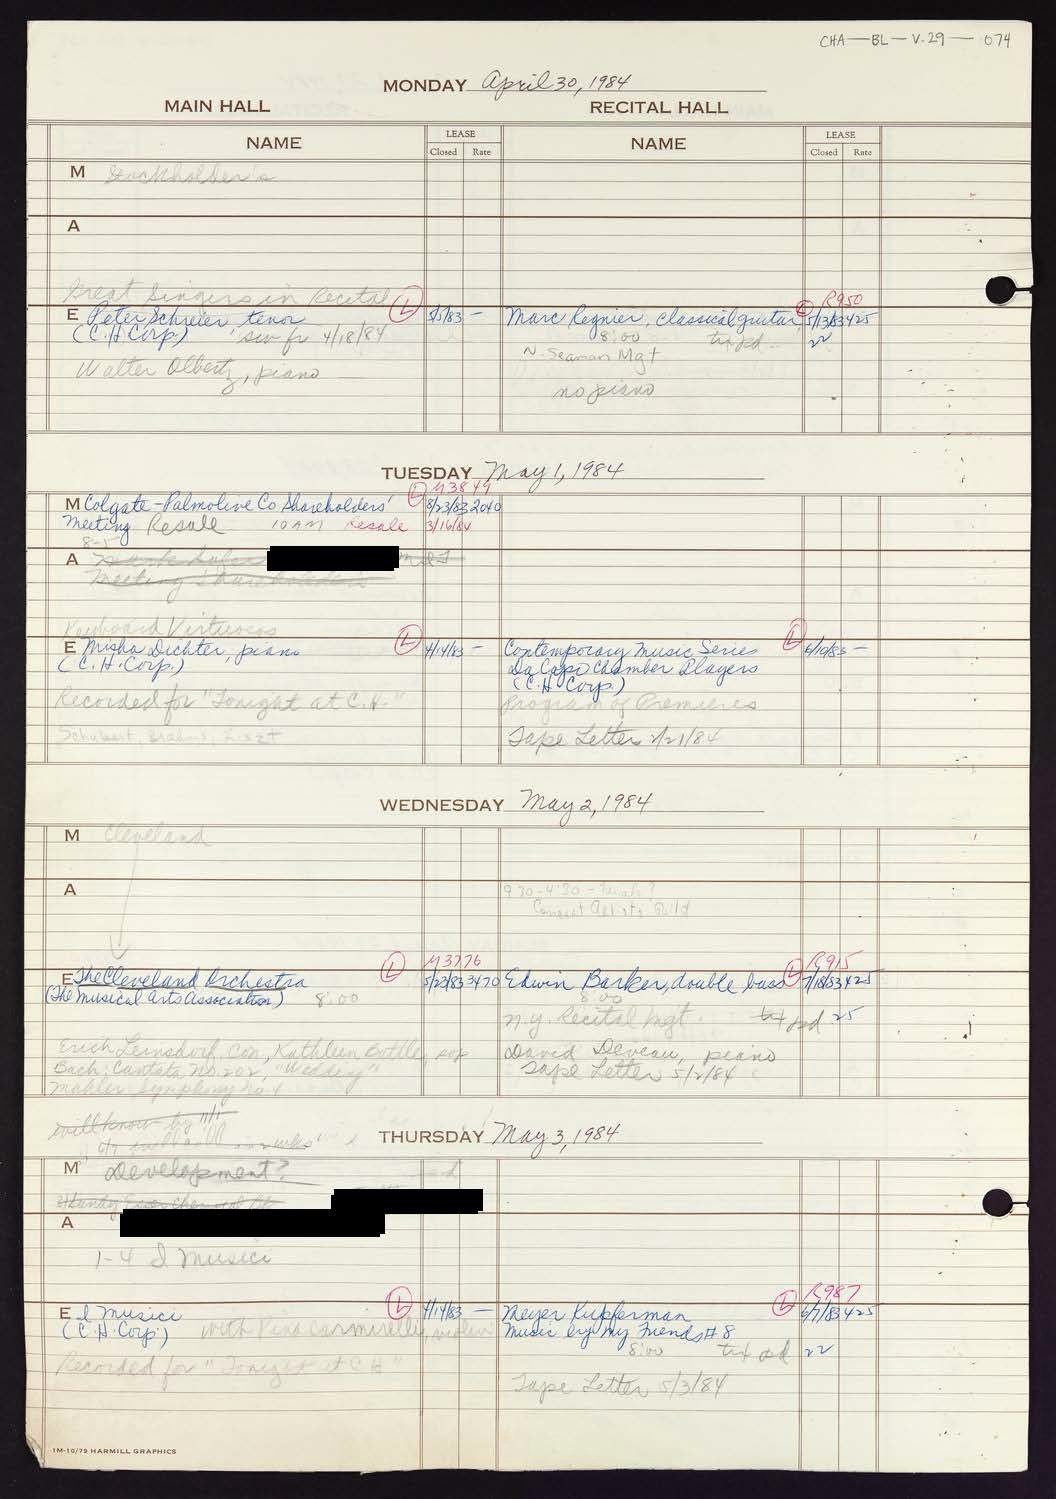 CHA-BL-V.29-074
MONDAY April 30, 1984
MAIN HALL
RECITAL HALL
NAME
LEASE
Closed Rate
NAME
LEASE
Closed Rate
M Stockholder's
A
Great Singers in Recital
E Peter Schreier, tenor Ⓛ
(C.H. Corp.) 4/18/84
Walter Olbertz, piano
R950
Marc Regnier, classical guitar Ⓛ 5/13/83 425
8:00 22
N. Seaman Mgt
no piano
TUESDAY May 1, 1984
Ⓛ M3849
M Colgate-Palmolive Co Shareholders' 8/23/83 2040
Meeting Resale 10AM Resale 3/16/84
8-5
A
Meeting Shareholders
Keyboard Virtuosos
E Misha Dichter, piano Ⓛ 4/14/83 —
(C.H. Corp.)
Recorded for "Tonight at C.H."
Schubert, Brahms, Liszt
Contemporary Music Series Ⓛ 6/10/83 —
Da Capo Chamber Players
(C.H. Corp)
Program of Premieres
Tape Letter 2/21/84
WEDNESDAY May 2, 1984
M Cleveland
A
9 30-4 30
Concert Artists Guild
Ⓛ M3776
E The Cleveland Orchestra 5/23/83 3470
(The Musical Arts Association) 8:00
Erich Leinsdorf, Con, Kathleen Battle, sop
Bach: Cantata No. 202, "Wedding"
Mahler Symphony No 4
R915
Edwin Barker, double bass Ⓛ 7/18/83 425
8:00
N.Y. Recital Mgt. 25
David Deveau, piano
Tape Letter 5/2/84
will know by 11/1
THURSDAY May 3, 1984
M Development?
A
1-4 I Musici
E I Musici Ⓛ 4/14/83 —
(C.H. Corp) with Pina Carmirelli, violin
Recorded for "Tonight at CH"
R987
Meyer Kupferman Ⓛ 6/7/83 425
Music by My Friends #8
8:00 22
Tape Letter 5/3/84
1M-10/79 HARMILL GRAPHICS